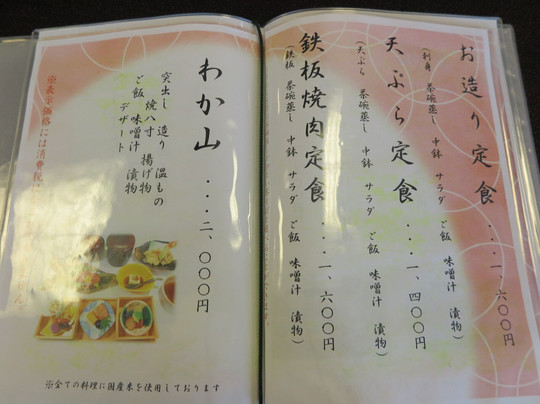 お造り定食・・・・一、六〇〇円
(刺身 茶碗蒸し 中鉢 サラダ ご飯 味噌汁 漬物)
天ぷら定食・・・・一、四〇〇円
(天ぷら 茶碗蒸し 中鉢 サラダ ご飯 味噌汁 漬物)
鉄板焼肉定食・・・一、六〇〇円
(鉄板 茶碗蒸し 中鉢 サラダ ご飯 味噌汁 漬物)
わか山・・・・二、〇〇〇円
突出し 造り 温もの
焼八寸 揚げ物
ご飯 味噌汁 漬物
デザート
※表示価格には消費税に
※全ての料理に国産米を使用しております